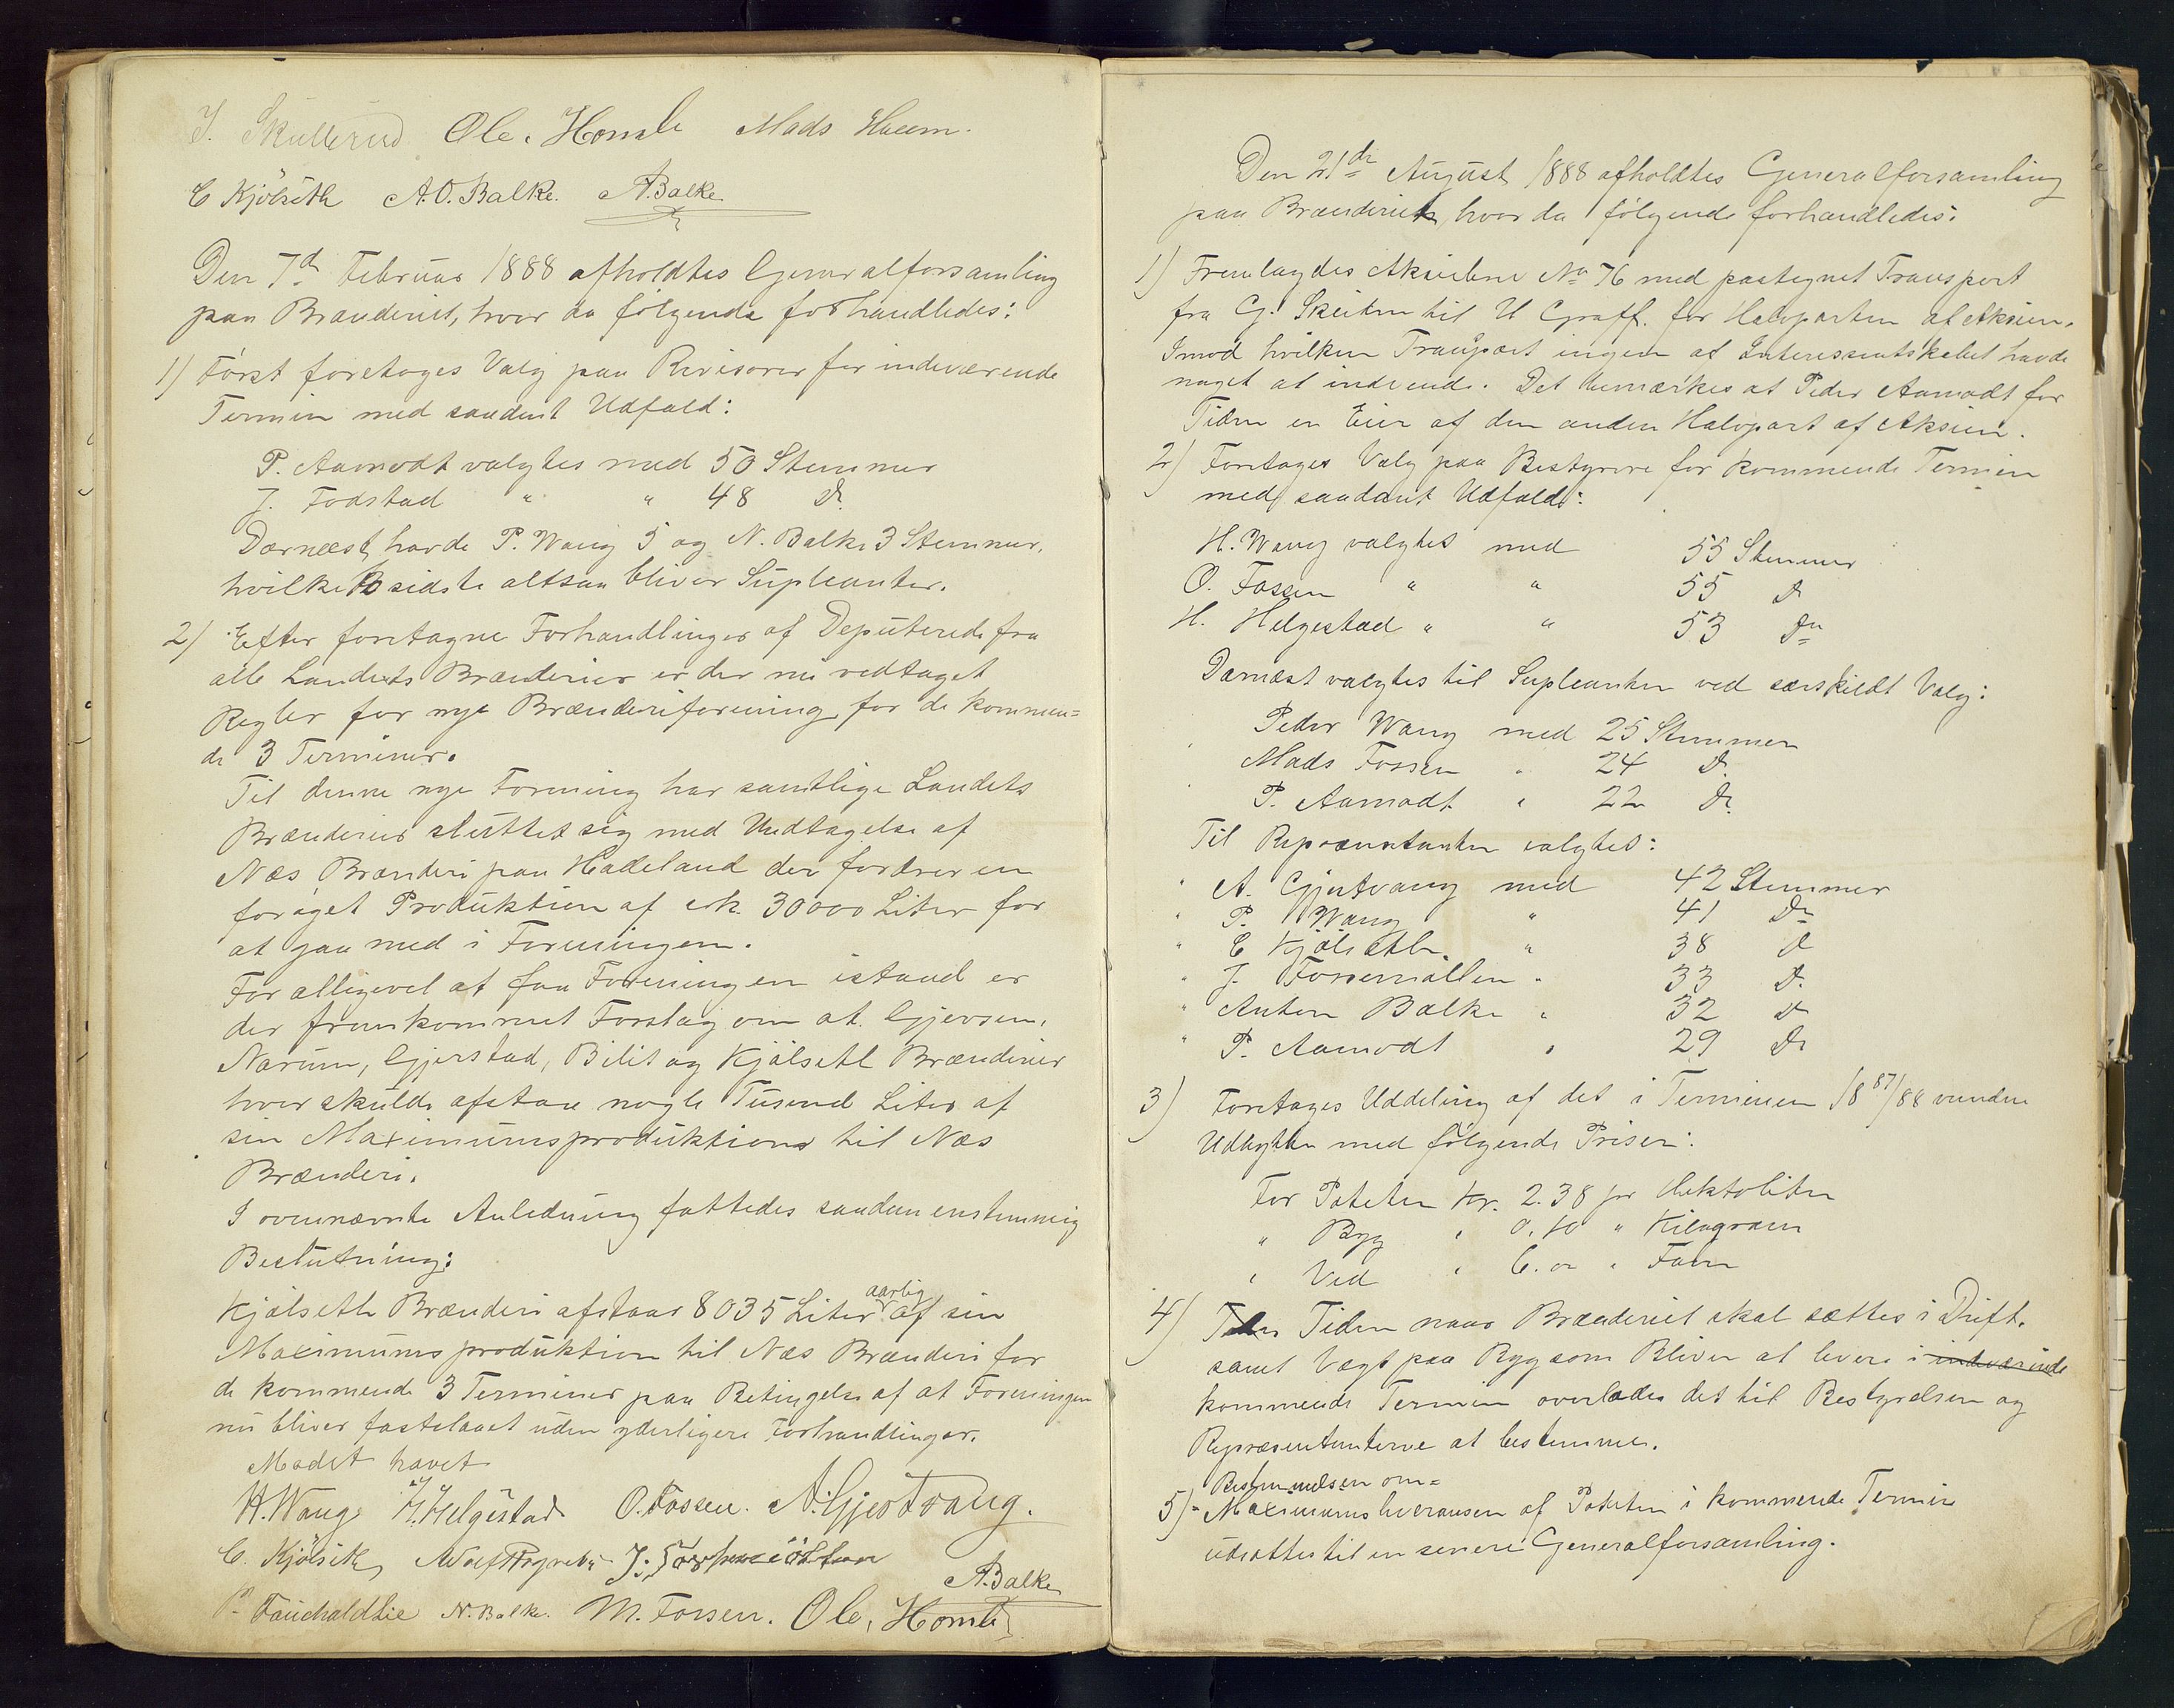 J. Skullerud Ole. Homle Mads Haem.
C Kjölseth A. O. Balke. A Balke
Den 7de Februar 1888 afholdtes Generalforsamling
paa Brænderiet, hvor da fölgende forhandledes:
1) Först foretoges Valg paa Revisorer for indeværende
Termin med saadant Udfald:
P. Aamodt valgtes med 50 Stemmer
J. Fodstad " " 48 Do
Dernæst havde P. Wang 5 og N. Balke 3 Stemmer,
hvilke to sidste altsaa bliver Supleanter.
2) Efter foretagne Forhandlinger af Deputerede fra
alle Landets Brænderier er der nu vedtaget
Regler for nye Brænderiforening for de kommen=
de 3 Terminer.
Til denne nye Forening har samtlige Landets
Brænderier sluttet sig med Undtagelse af
Næs Brænderi paa Hadeland der fordrer en
foröget Produktion af ca. 30000 Liter for
at gaa med i Foreningen.
For alligevel at faa Foreningen istand er
der fremkommet Forslag om at Gjevsen,
Narum, Gjerstad, Bilit og Kjölseth Brænderier
hver skulde afstaa nogle Tusend Liter af
sin Maximumsproduktion til Næs
Brænderi.
I ovennævnte Anledning fattedes saadan enstemmig
Beslutning:
Kjölseth Brænderi afstaar 8035 Liter aarlig af sin
Maximumsproduktion til Næs Brænderi for
de kommende 3 Terminer paa Betingelse af at Foreningen
nu bliver fastslaaet uden yderligere Forhandlinger.
Mödet hævet
H. Wang H. Helgestad O. Fossen. A. Gjestvang.
C. Kjölseth J. A Balke
P. Fauchaldlie N. Balke. M. Fossen. Ole, Homle
Den 21de August 1888 afholdtes Generalforsamling
paa Brænderiet, hvor da fölgende forhandledes:
1) Fremlagdes Aktiebrev No 76 med paategnet Transport
fra G. Skeiken til U Graff. for Halvparten af Aksien.
Imod hvilken Transport ingen af Interessentskabet havde
noget at indvende. Det bemærkes at Peder Aamodt for
Tiden er Eier af den anden Halvpart af Aksien.
2) Foretoges Valg paa Bestyrere for kommende Termin
med saadant Udfald:
H. Wang valgtes med 55 Stemmer
O. Fossen " " 55 Do
H. Helgestad " " 53 Do
Dernæst valgtes til Supleanter ved særskildt Valg:
Peder Wang med 25 Stemmer
Mads Fossen " 24 Do
P. Aamodt " 22 Do
Til Repræsentanter valgtes:
A. Gjestvang med 42 Stemmer
P. Wang " 41 Do
C Kjölseth " 38 Do
J. Fossemöllen " 33 Do
Anton Balke " 32 Do
P. Aamodt " 29 Do
3) Foretoges Uddeling af det i Terminen 1887/88 vundne
Udbytte med fölgende Priser:
For Poteter Kr. 2.38 pr Hektoliter
" Byg " 0,10 " Kilogram
" Ved " 6.00 " Favn
4) Tiden naar Brænderiet skal sættes i Drift.
samt Vægt paa Byg som Bliver at levere i indeværende
kommende Termin overlades det til Bestyrelsen og
Repræsentanterne at bestemme.
Bestemmelsen om=
5) Maximumsleverансen af Poteter i kommende Termin
udsættes til en senere Generalforsamling.